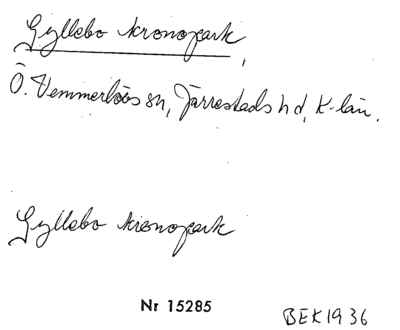 Gyllebo kronopark,
Ö. Vemmerlövs sn, Järrestads hd, K-län.
Gyllebo kronopark
Nr 15285
BEK1936